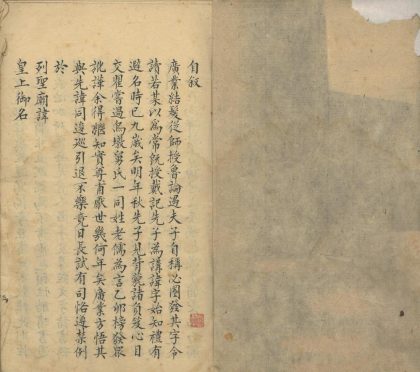 自叙
廣業結髮從師授魯論過夫子自稱必圈發其字令
讀若某以為常旣授戴記先子為講諱字始知禮有
避名時已九歲矣明年秋先子見背藐諸負笈心目
文瞿嘗過烏墩舅氏一同姓老儒為言乙卯榜發眾
訛謹余得雋知實尊甫感世幾何年矣廣業方悟其
與先諱同逡巡引退不樂竟日長試有司恪遵禁例
於
列聖廟諱
皇上御名